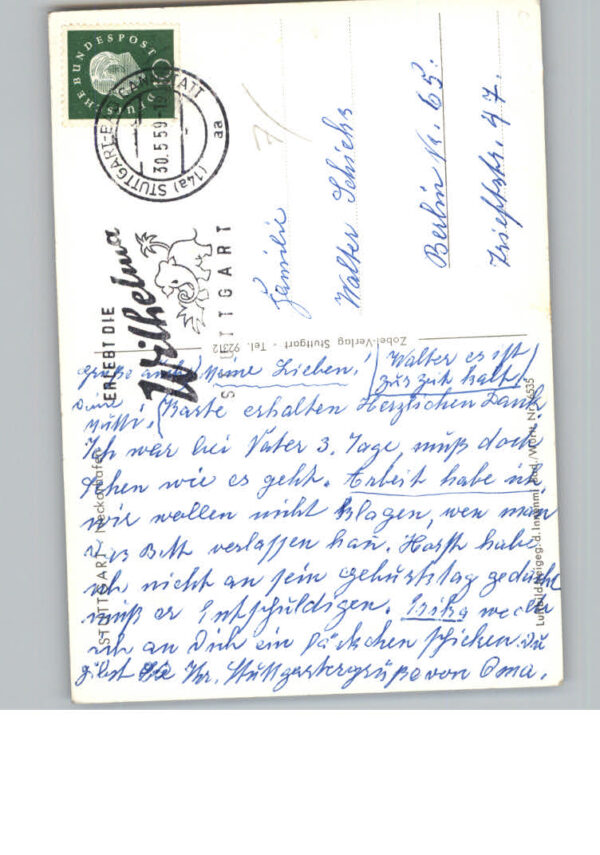 DEUTSCHE BUNDESPOST
10
(14a) STUTTGART-BAD CANNSTATT
30.5.59-19
aa
ERLEBT DIE
Wilhelma
STUTTGART
Familie
Walter Schiehs
Berlin N. 65.
Triftstr. 47.
Zobel-Verlag Stuttgart - Tel. 92312
STUTTGART Neckarhafen
Meine Lieben!
Walter es ist
zur zeit kalt
grüße auch
Deine
Mutti!
Karte erhalten Herzlichen Dank
Ich war bei Vater 3. Tage, muß doch
sehen wie es geht. Arbeit habe ich
wir wollen nicht klagen, wen man
das Bett verlassen kan. Horst habe
ich nicht an sein geburtstag gedacht
muß er Entschuldigen.
ich an Dich ein päckchen schicken. Du
gibst Ihr. Stuttgartergrüße von Oma.